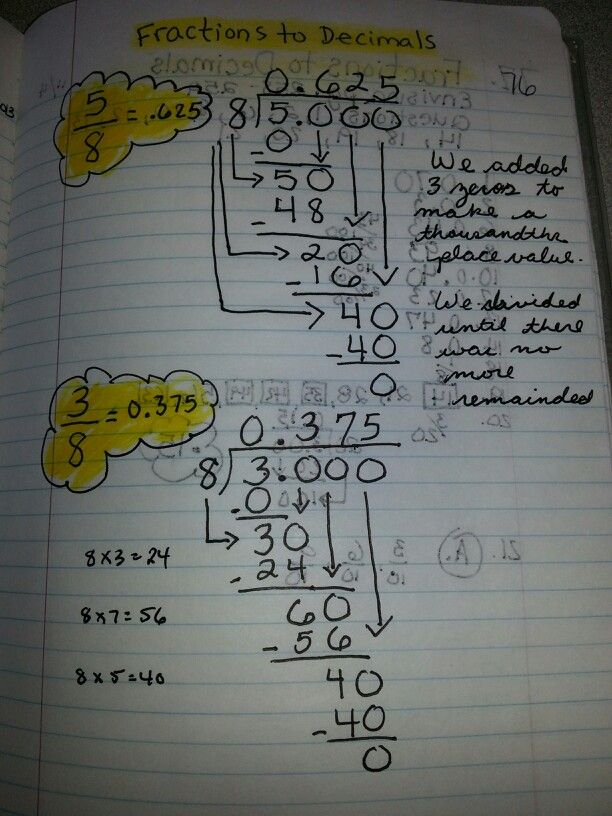 Fractions to Decimals
76
5/8 = .625
0.625
8) 5.000
- 0
50
- 48
20
- 16
40
- 40
0
We added
3 zeros to
make a
thousandths
place value.
We divided
until there
was no
more
remainded
3/8 = 0.375
0.375
8) 3.000
- 0
30
- 24
60
- 56
40
- 40
0
8 x 3 = 24
8 x 7 = 56
8 x 5 = 40